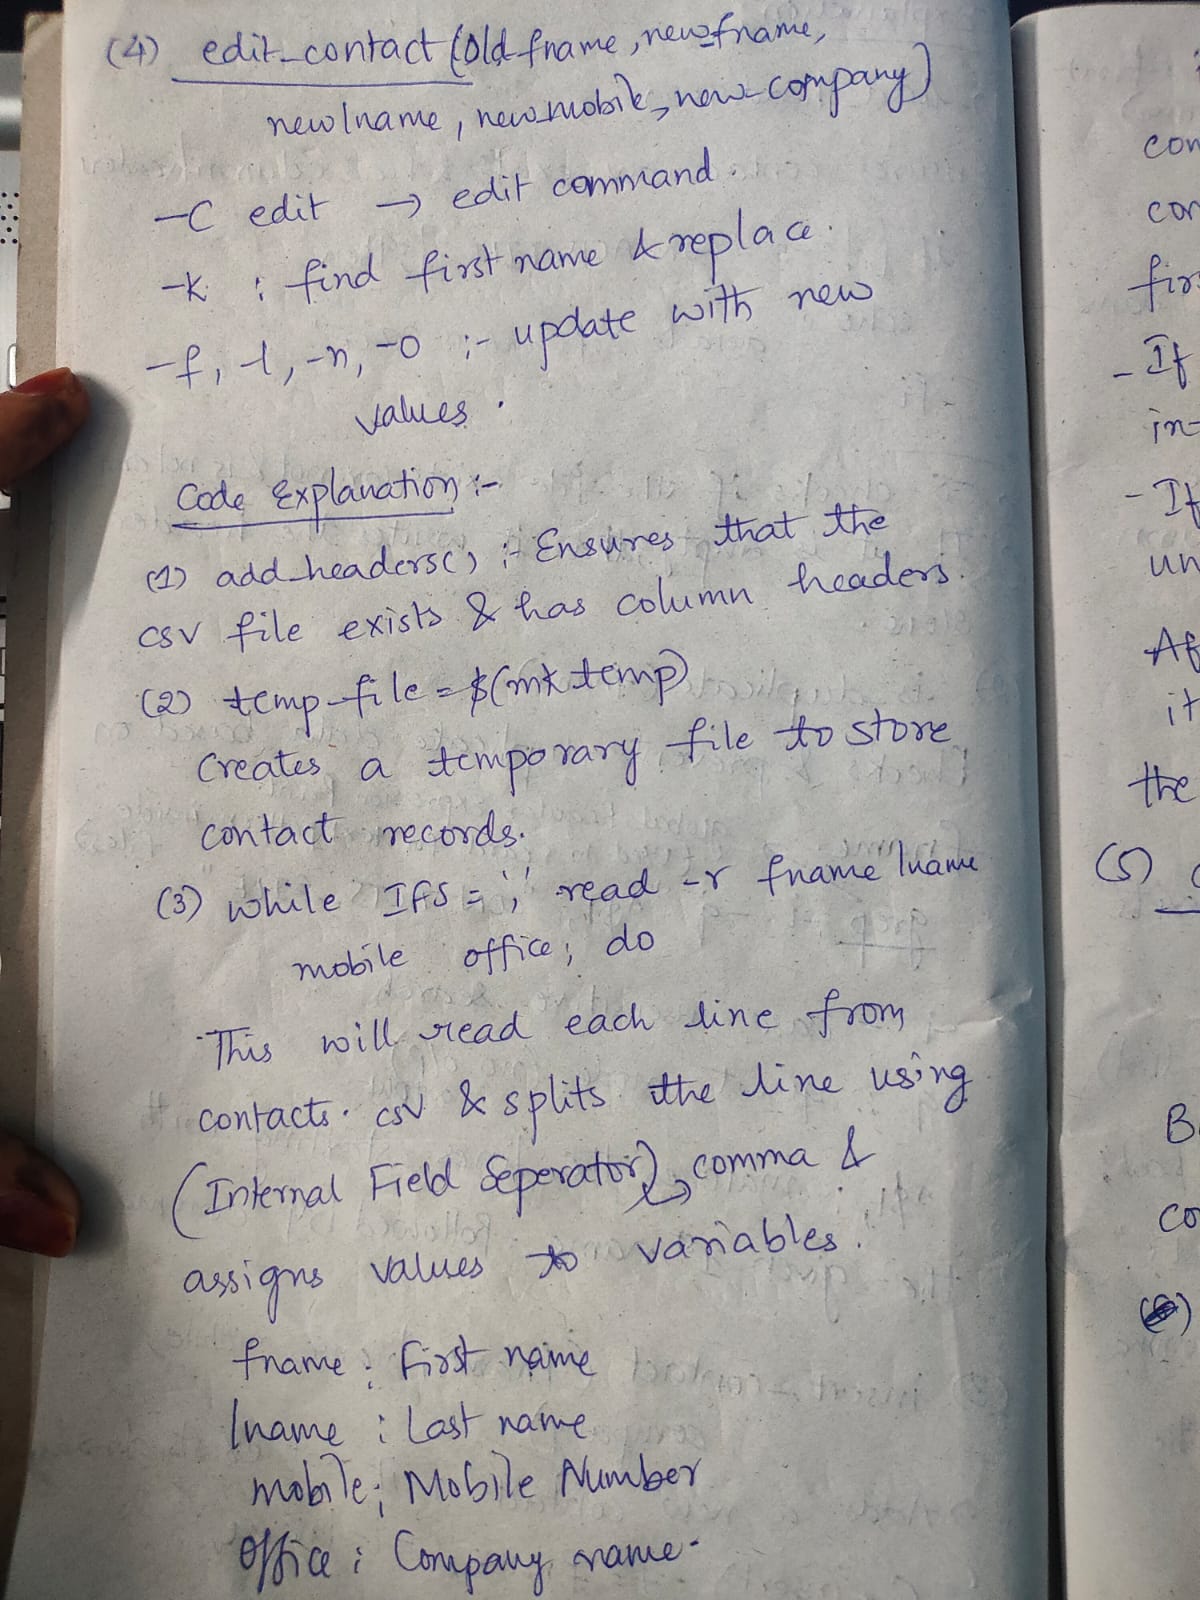 (4) edit_contact (old_fname, new_fname,
newlname, new_mobile, new_company)
-C edit → edit command.
-k : find first name & replace.
-f, -l, -n, -o :- update with new
values.
Code Explanation :-
(1) add_headers() :- Ensures that the
csv file exists & has column headers.
(2) temp-file = $(mktemp)
Creates a temporary file to store
contact records.
(3) while IFS = ',' read -r fname lname
mobile office; do
This will read each line from
contacts.csv & splits the line using
(Internal Field Seperator) → comma &
assigns values to variables.
fname : First name
lname : Last name
mobile : Mobile Number
office : Company name.
con
cor
firs
- If
in-
- If
un
Af
it
the
(5)
B
co